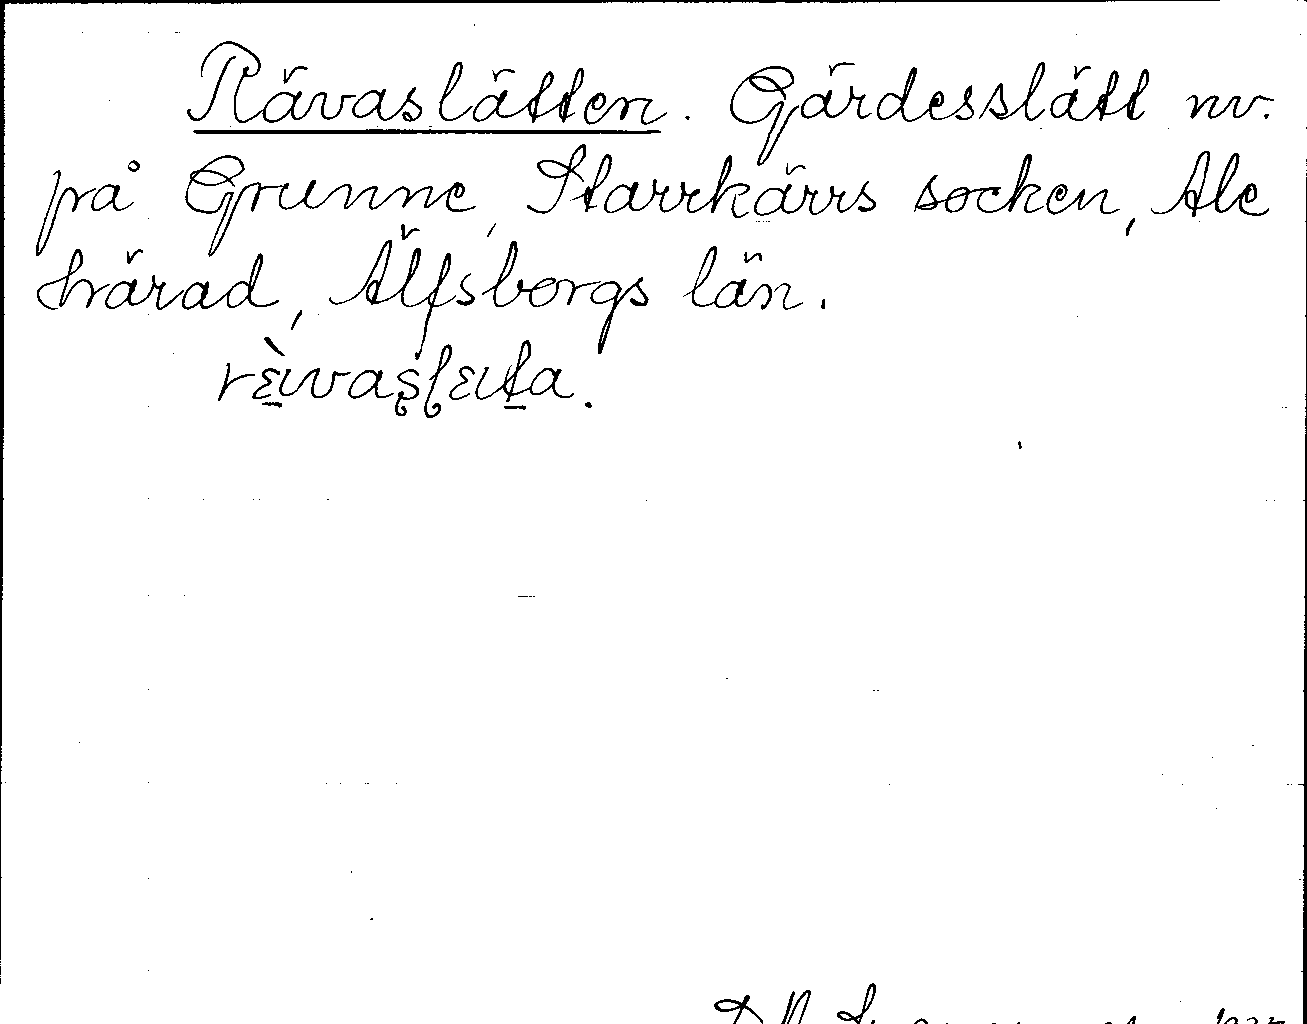 Rävaslätten. Gärdesslätt nv.
på Grunne, Starrkärrs socken, Ale
härad, Älfsborgs län.
rɛ̀ɩvaşʂlɛɩta.